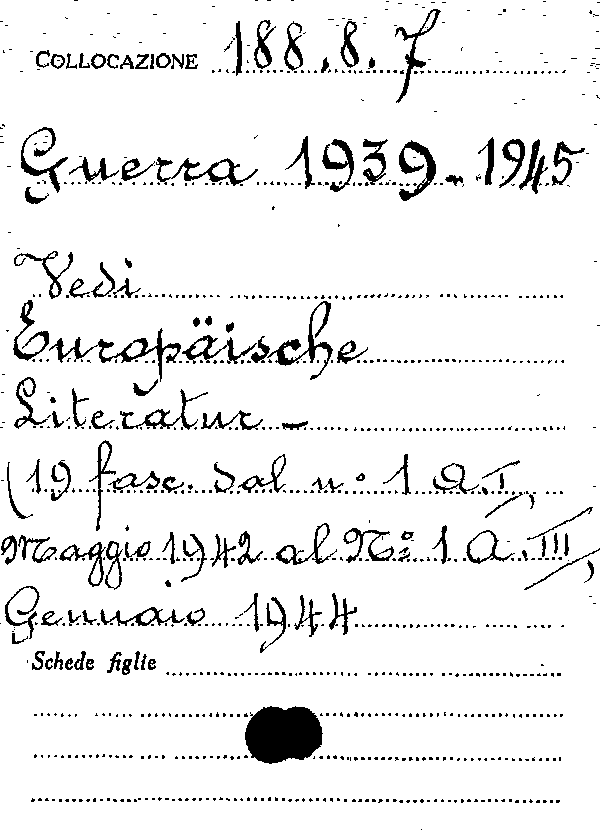 COLLOCAZIONE 188.8.7
Guerra 1939-1945
Vedi
Europäische
Literatur -
(19 fasc. dal n° 1 A.I,
Maggio 1942 al N° 1 A.III,
Gennaio 1944
Schede figlie